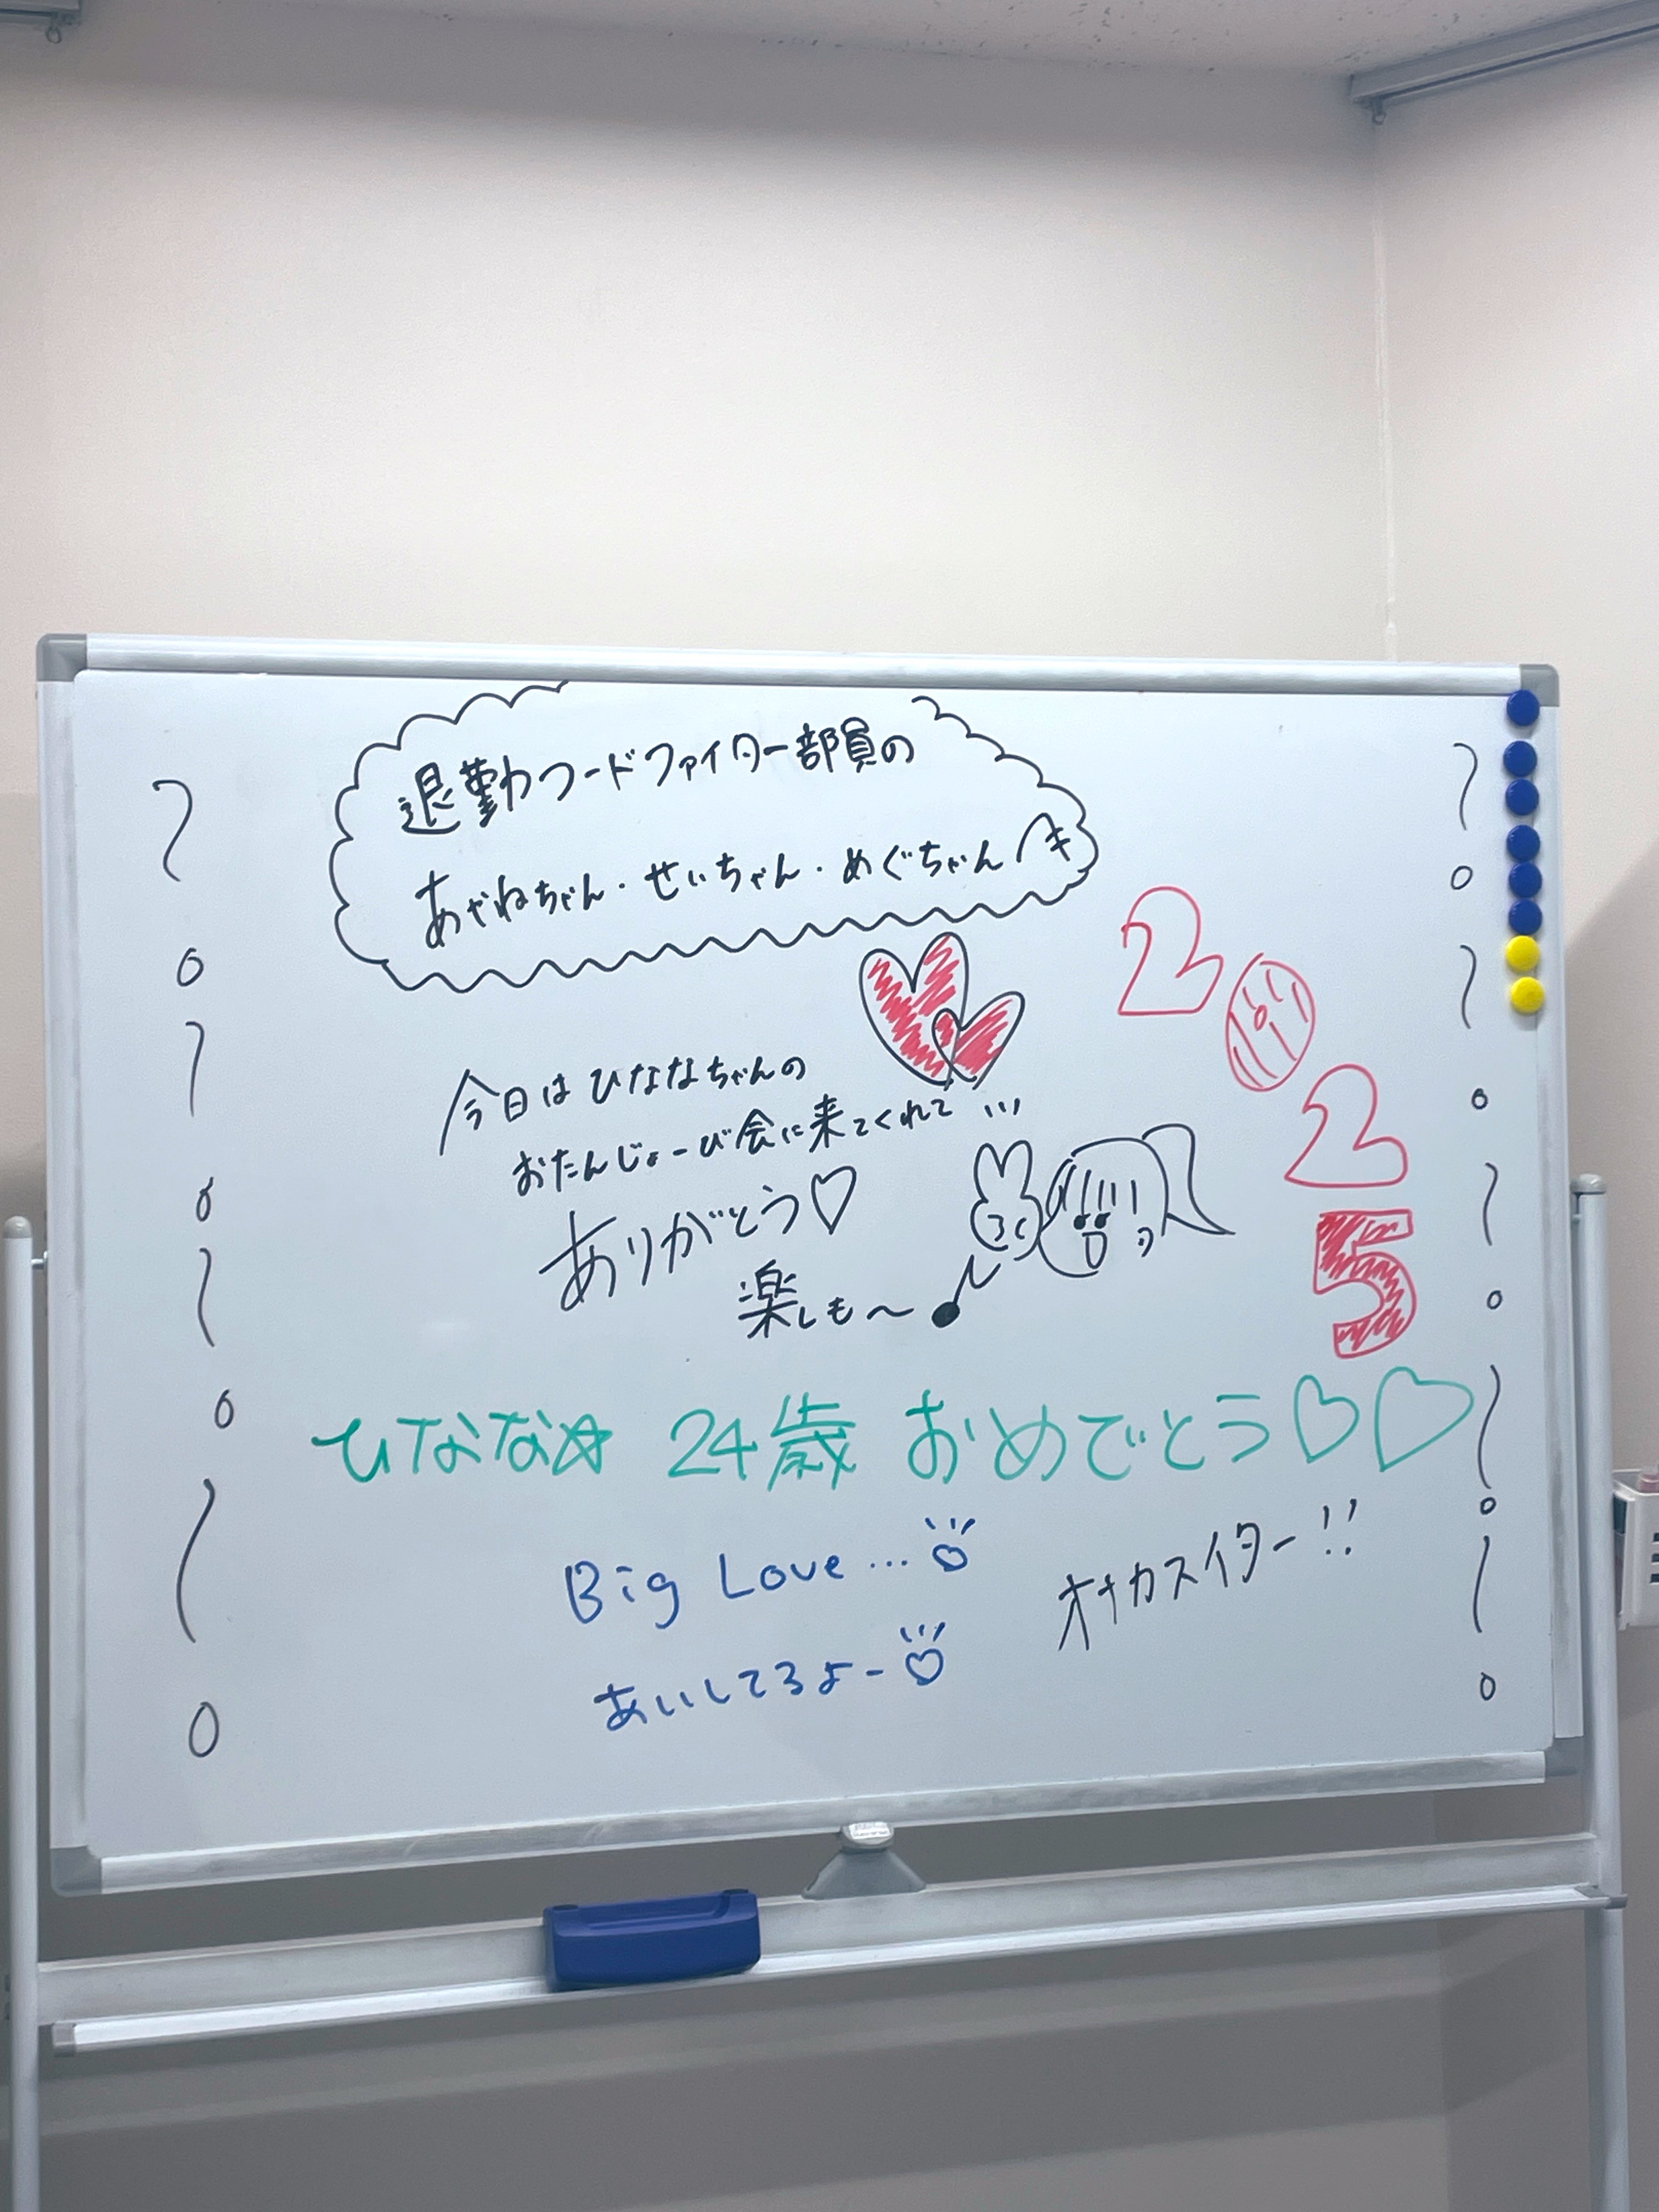 退勤フードファイター部員の
あやねちゃん・せいちゃん・めぐちゃんへ
今日はひななちゃんの
おたんじょーび会に来てくれて
ありがとう♡
楽しも〜♪
2025
ひなな☆ 24歳 おめでとう♡♡
Big Love...♡
あいしてるよー♡
オナカスイター!!